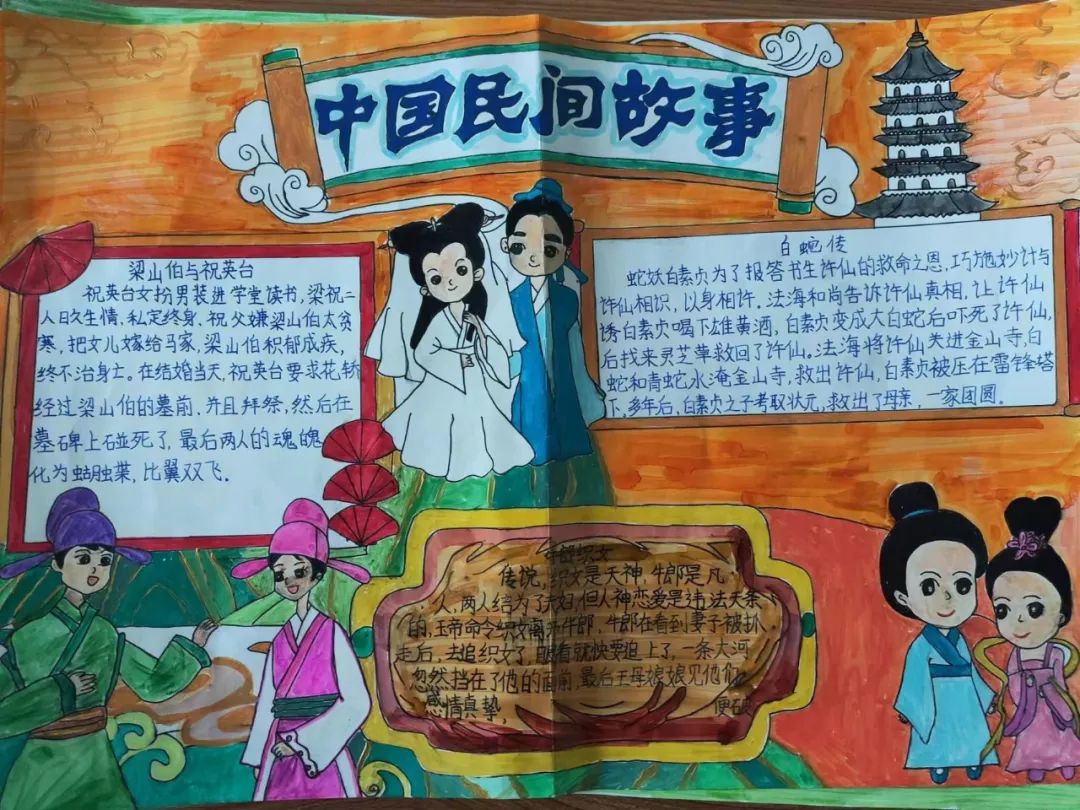 中国民间故事
梁山伯与祝英台
祝英台女扮男装进学堂读书,梁祝二
人日久生情,私定终身,祝父嫌梁山伯太贫
寒,把女儿嫁给马家,梁山伯积郁成疾,
终不治身亡。在结婚当天,祝英台要求花轿
经过梁山伯的墓前,并且拜祭,然后在
墓碑上碰死了,最后两人的魂魄
化为蝴蝶,比翼双飞。
白蛇传
蛇妖白素贞为了报答书生许仙的救命之恩,巧施妙计与
许仙相识,以身相许,法海和尚告诉许仙真相,让许仙
诱白素贞喝下雄黄酒,白素贞变成大白蛇后吓死了许仙,
后找来灵芝草救回了许仙。法海将许仙关进金山寺,白
蛇和青蛇水淹金山寺,救出许仙,白素贞被压在雷锋塔
下,多年后,白素贞之子考取状元,救出了母亲,一家团圆。
织女
传说,织女是天神,牛郎是凡
人,两人结为了夫妇,但人神恋爱是违法天条
的,玉帝命令织女离开牛郎,牛郎在看到妻子被抓
走后,去追织女了,眼看就快要追上了,一条大河
忽然挡在了他的面前,最后王母娘娘见他们
感情真挚, 便